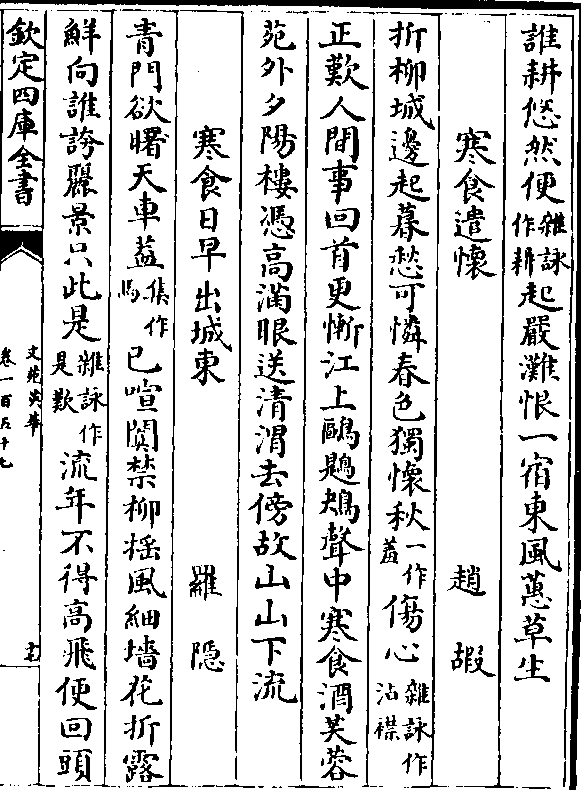 誰耕悠然便雜詠作耕起嚴灘恨一宿東風蕙草生
寒食遣懷 趙嘏
折柳城邊起暮愁可憐春色獨懷秋一作傷心雜詠作沾襟
正歎人間事回首更慚江上鷗鶗鴂聲中寒食酒芙蓉
苑外夕陽樓憑高滿眼送清渭去傍故山山下流
寒食日早出城東 羅隱
青門欲曙天車葢集作馬已喧闐禁柳摇風細墻花折露
鮮向誰誇麗景只此是雜詠作是歎流年不得高飛便回頭
欽定四庫全書
文苑英華
卷一百五十七